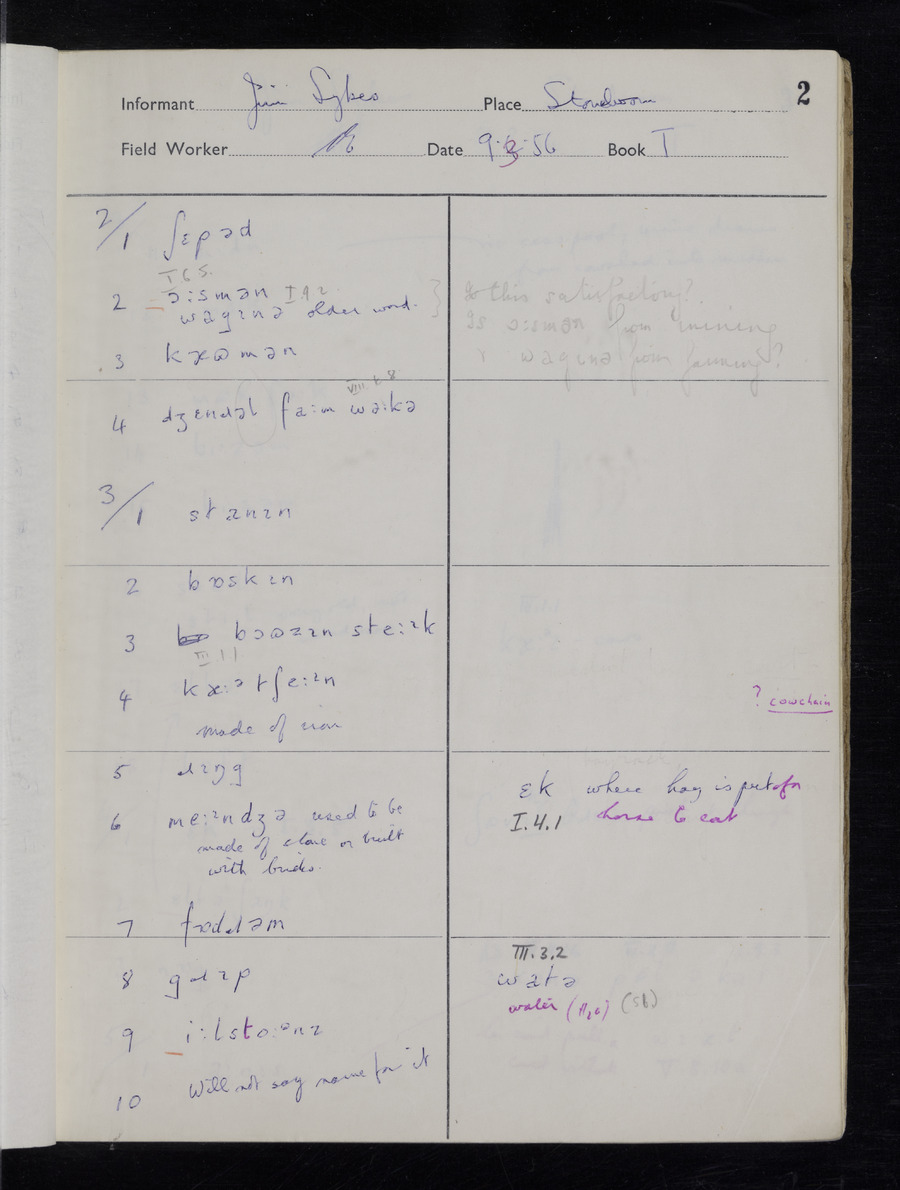 2
Informant Jim Sykes Place
Field Worker Date 9·3·56 Book I
2/1 ʃɛpəd
I 6 5.
2 ɔːsmən I 9 2
wagɪnə older word. }
Is this satisfactory?
Is ɔːsmən from mining
& wagɪnə from farming?
3 kaʊmən
VIII. 6. 8
4 dʒɛndəl faːm wəːkə
3/1 stanɪn
2 bɒskɪn
3 bɔʊzɪn steːɪk
III 11
4 kæːə tʃeːɪn
made of iron
? cowchain
5 dɪŋg
6 meːɪndʒə used to be
made of stone or built
with bricks.
ɛk where hay is put for
I.4.1 horse to eat
7 fɒdəm
8 gɹɪp
III.3.2
watə
water
9
10 Will not say name for it